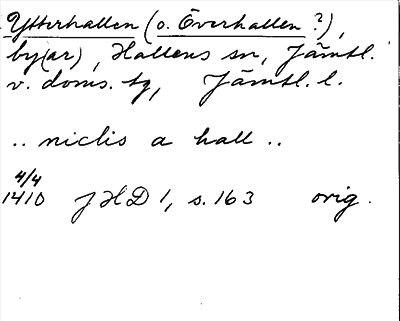 Ytterhallen (o. Överhallen?),
by(ar), Hallens sn, Jämtl.
v. doms. tg, Jämtl. l.
.. niclis a hall ..
4/4
1410 JHD 1, s. 163 orig.